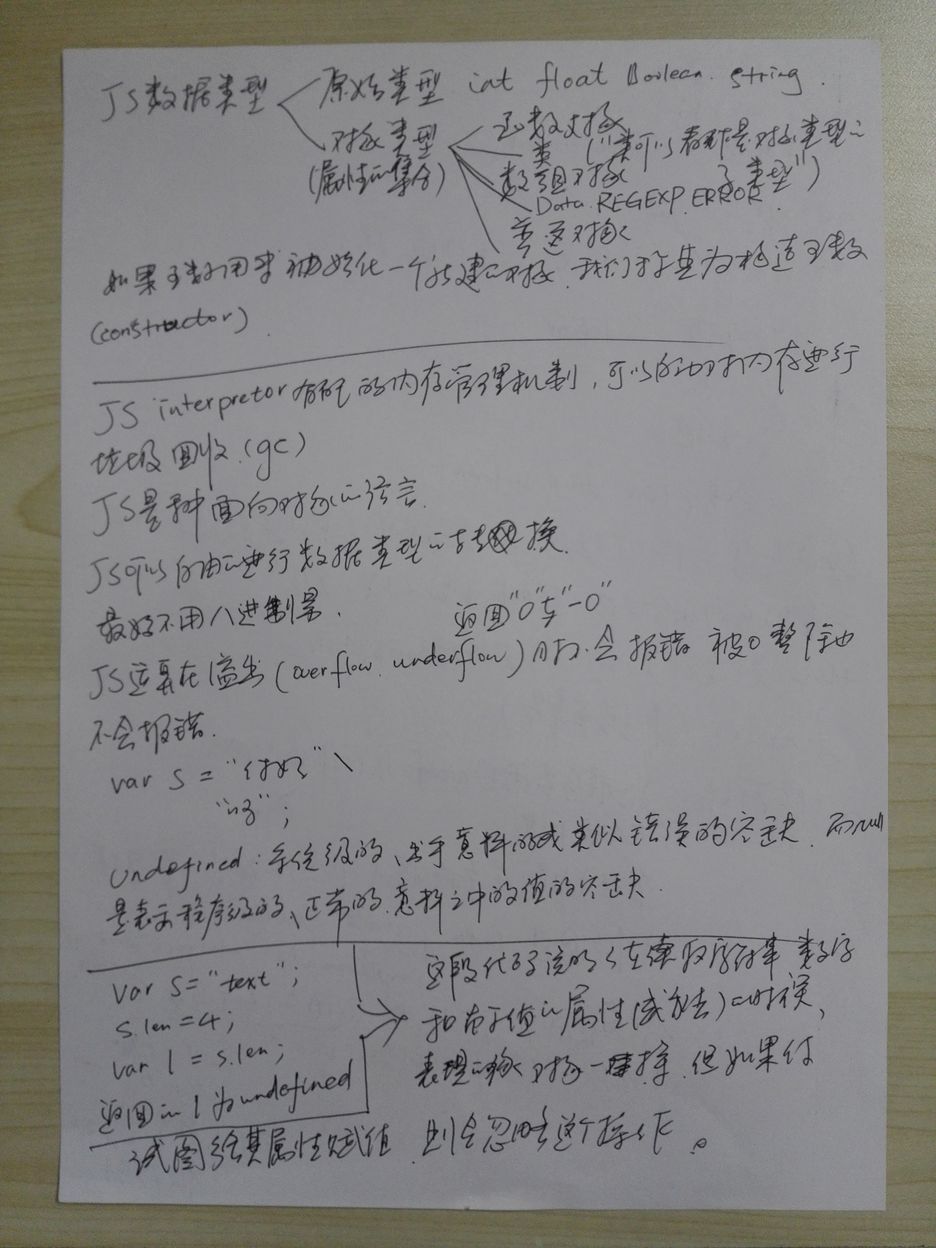 JS数据类型 原始类型 int float Boolean. string.
对象类型 函数对象
(属性的集合) 类 ("类可以看作是对象类型的
数组对象 子类型")
Data. REGEXP. ERROR.
普通对象
如果函数用来初始化一个新建的对象,我们称其为构造函数
(constructor)
JS interpretor有自己的内存管理机制,可以自动对内存进行
垃圾回收.(gc)
JS是种面向对象的语言.
JS可以自由的进行数据类型的转换.
最好不用八进制量. 返回"0"与"-0"
JS运算在溢出(overflow. underflow)时不会报错 被0整除也
不会报错.
var s = "你好" \
";
undefined:系统级的、出乎意料的或类似错误的空缺. 而null
是表示程序级的、正常的、意料之中的值的空缺.
var s="text";
s.len=4;
var l = s.len;
返回的l为undefined
这段代码说明了在读取字符串 数字
和布尔值的属性(或方法)的时候,
表现的像对象一样 但如果你
试图给其属性赋值 则会忽略这个操作。